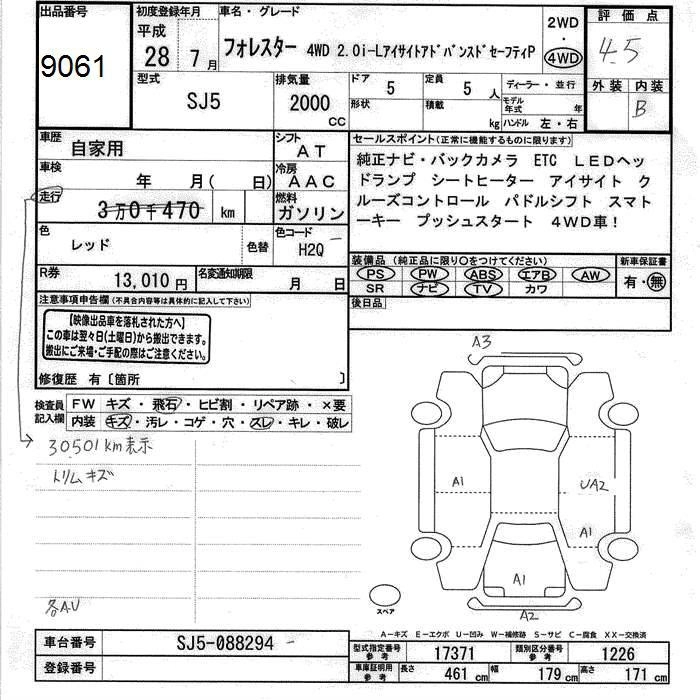 出品番号
9061
初度登録年月
平成
28 7月
車名・グレード
フォレスター 4WD 2.0i-LアイサイトアドバンスドセーフティP
2WD
・
4WD
評価点
4.5
外装 内装
B
型式
SJ5
排気量
2000
CC
ドア
5
定員
5 人
形状
積載
kg
ディーラー・並行
モデル年式 年
ハンドル 左・右
車歴
自家用
シフト
AT
車検
年 月( 日)
冷房
AAC
走行
3万0千470 km
燃料
ガソリン
色
レッド
色替
色コード
H2Q
R券
13,010円
名変通知期限
月 日
セールスポイント(正常に機能するものに限ります)
純正ナビ・バックカメラ ETC LEDヘッ
ドランプ シートヒーター アイサイト ク
ルーズコントロール パドルシフト スマト
ーキー プッシュスタート 4WD車!
装備品 (純正品に限り○をつけてください)
PS PW ABS エアB AW
SR ナビ TV カワ
新車保証書
有・無
後日品
注意事項申告欄(不具合内容等は具体的に記入して下さい)
【映像出品車を落札された方へ】
この車は翌々日(土曜日)から搬出できます。
搬出にご来場・ご手配の際はご注意ください。
修復歴 有〔箇所 〕
検査員
記入欄
FW キズ・飛石・ヒビ割・リペア跡・×要
内装 キズ・汚レ・コゲ・穴・スレ・キレ・破レ
30501km表示
トリムキズ
各A.U
A3
A1
UA2
A1
A1
A2
スペア
A-キズ E-エクボ U-凹み W-補修跡 S-サビ C-腐食 XX-交換済
車台番号
SJ5-088294
登録番号
型式指定番号
参考
17371
類別区分番号
参考
1226
車庫証明用
参考
長さ 461 cm 幅 179 cm 高さ 171 cm